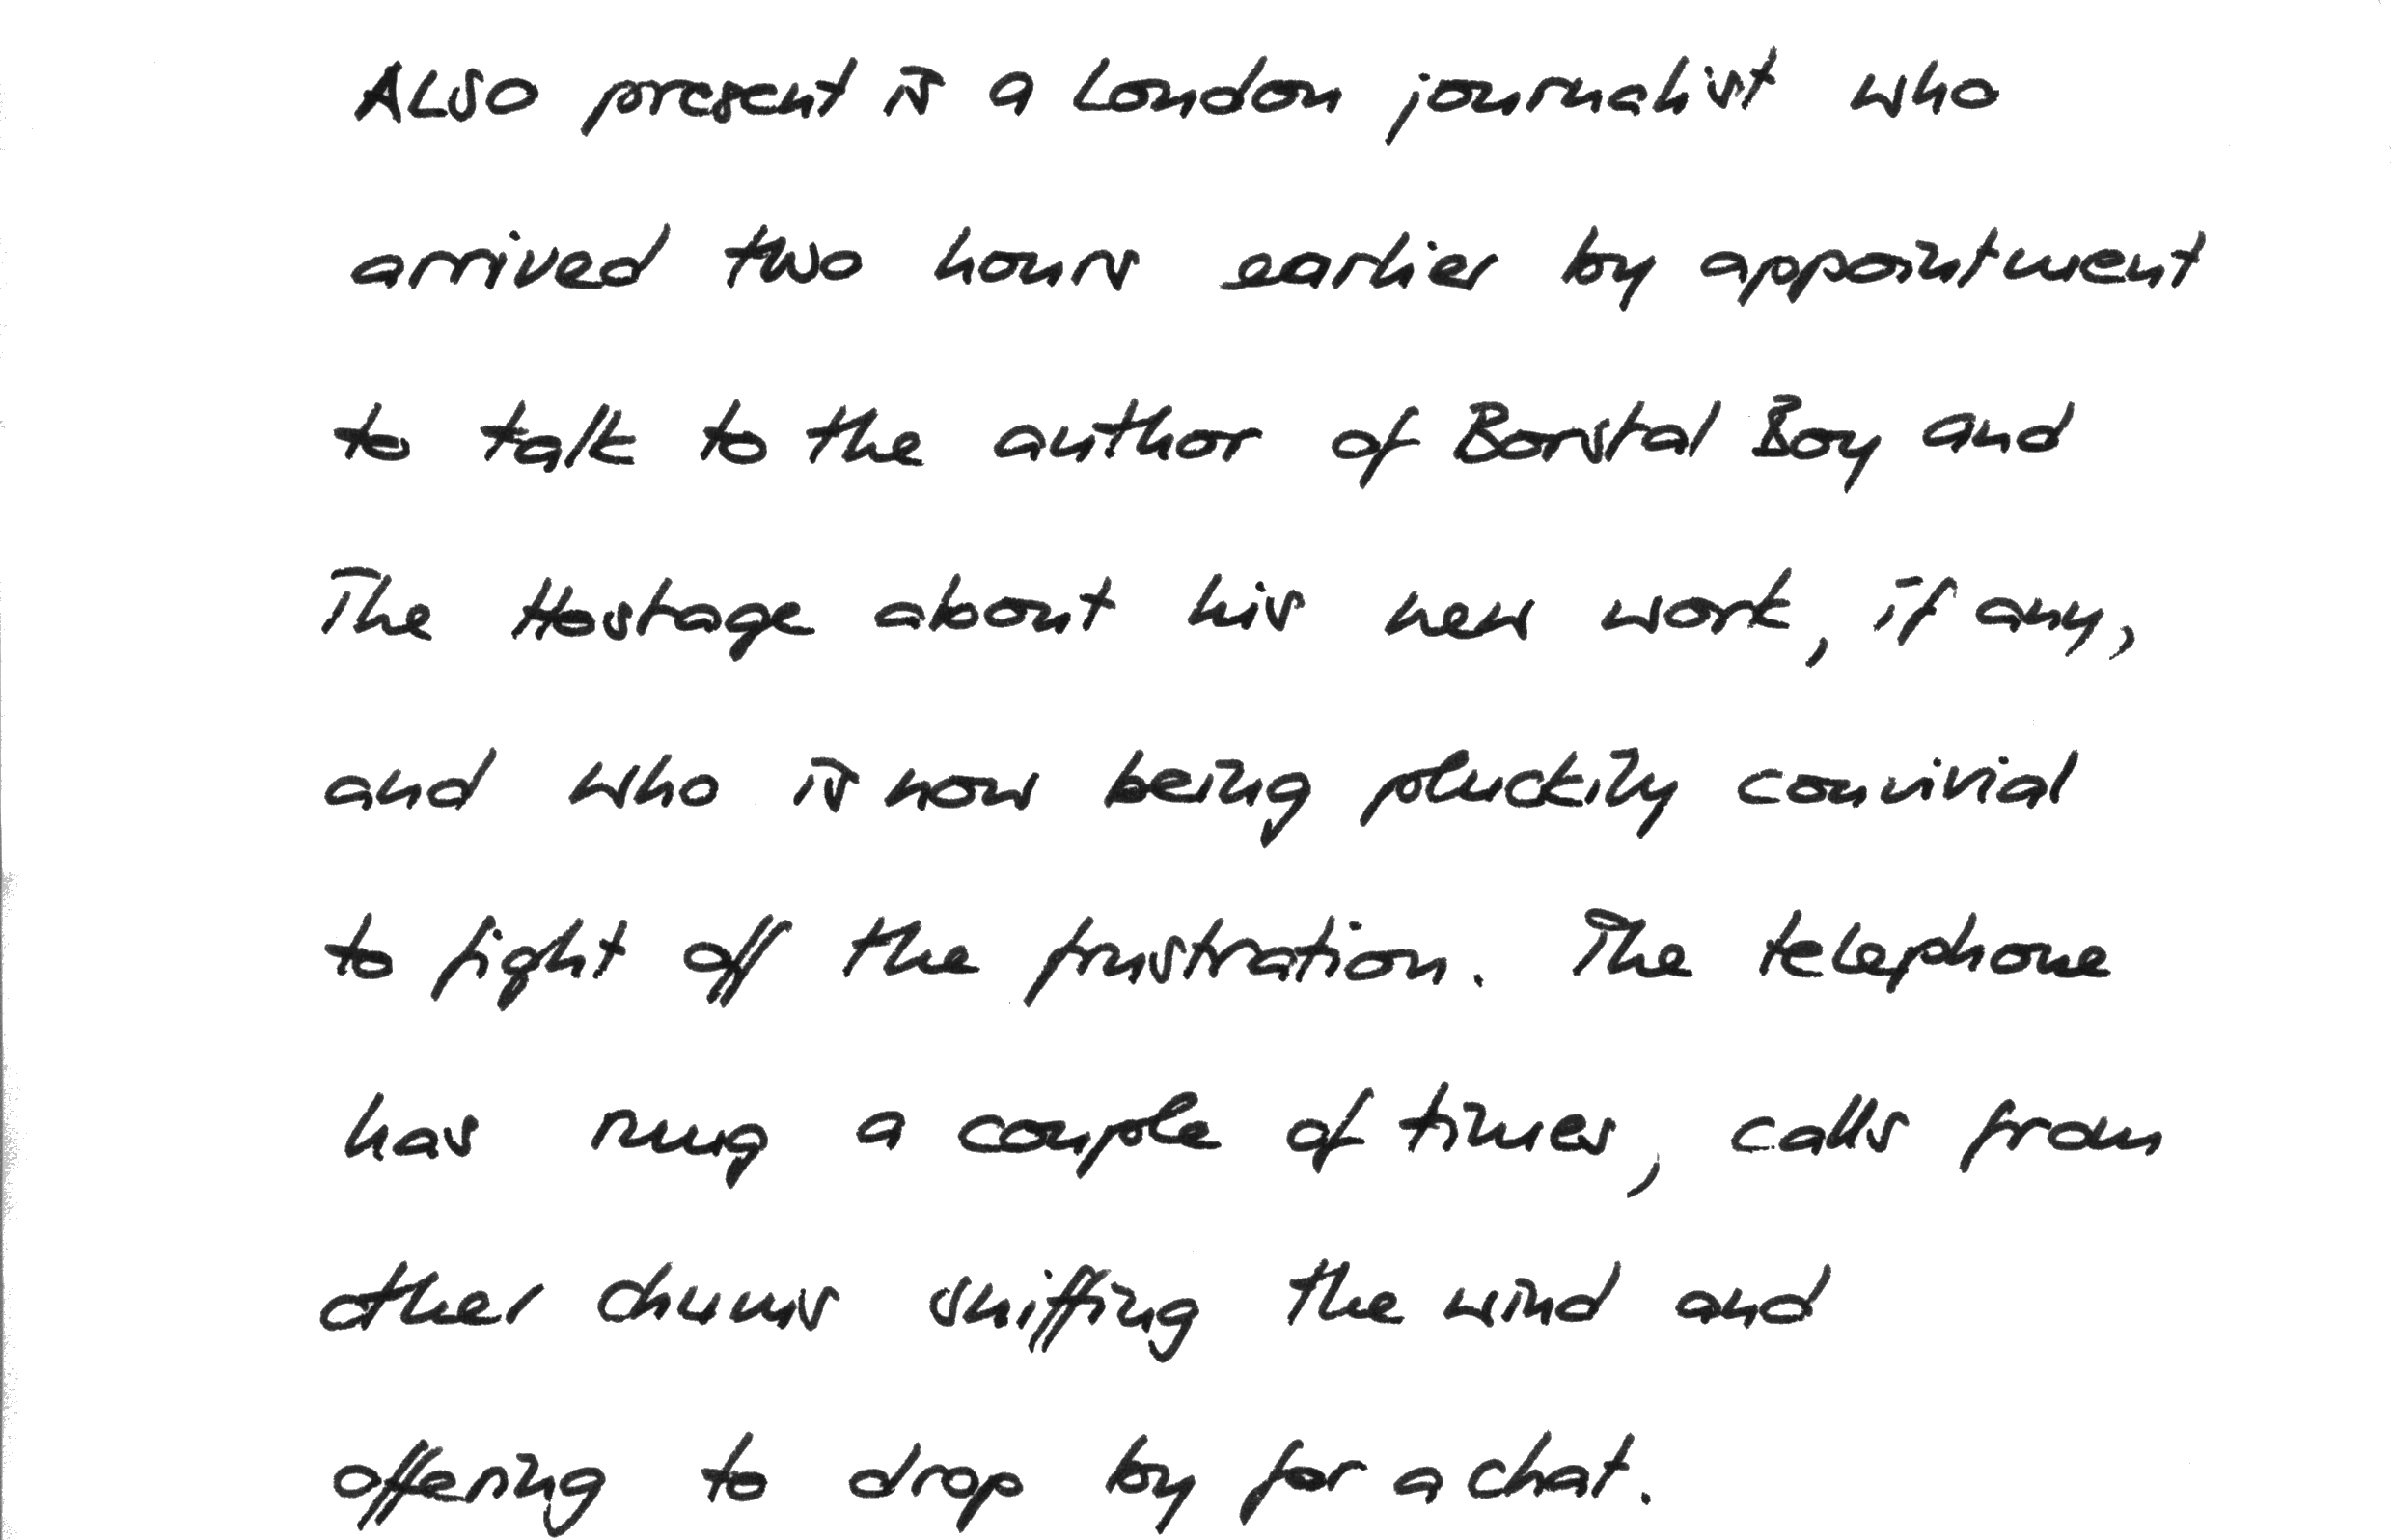 ALSO present is a London journalist who
arrived two hours earlier by appointment
to talk to the author of Borstal Boy and
The Hostage about his new work, if any,
and who is now being pluckily convivial
to fight off the frustration. The telephone
has rung a couple of times, calls from
other chums sniffing the wind and
offering to drop by for a chat.